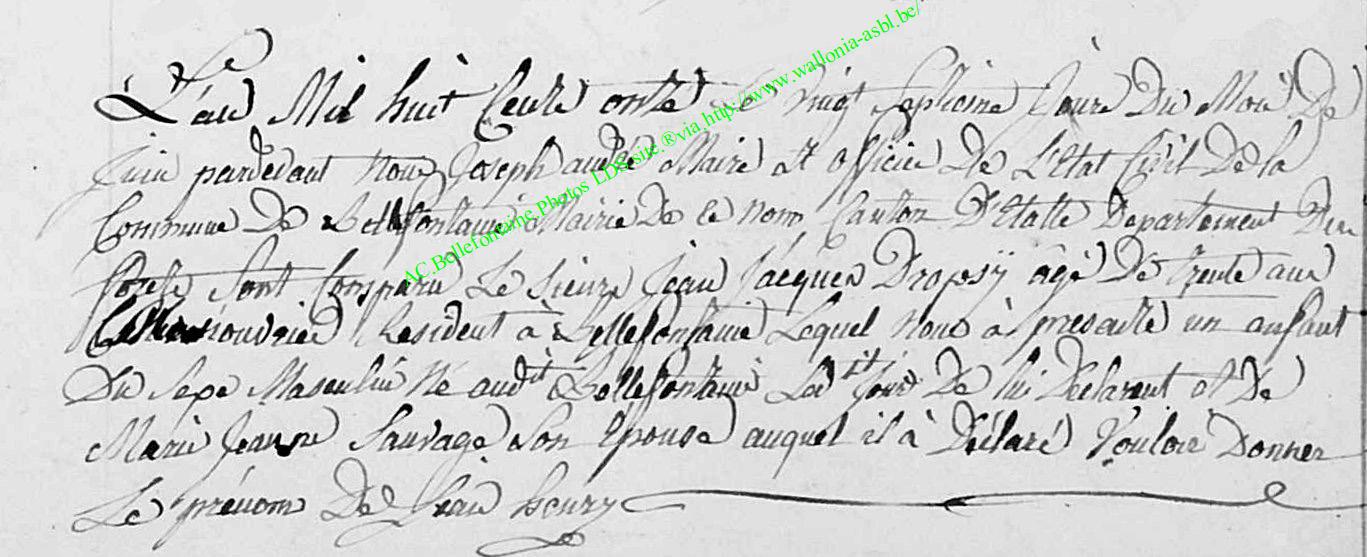 L'an Mil huit Cents onze le vingt septieme Jours Du Mois De
Juin pardevant Nous Joseph andre Maire et officier De L'Etat Civil De la
Commune De Bellefontaine Mairie De ce nom Canton D'Etalle Departement Des
forets Sont Comparu Le Sieurs Jean Jacques Dropsÿ âgé De Trente ans
Resident à Bellefontaine Lequel Nous à presanté un anfant
Du Sexe Masculin Né audit Bellefontaine Ledit Jour De lui Déclarent et De
Marie Jeanne Sauvage Son Epouse auquel il à Déclaré Vouloir Donner
Le prénom De Jean henry
AC.Bellefontaine.Photos LDS site.®via http://www.wallonia-asbl.be/